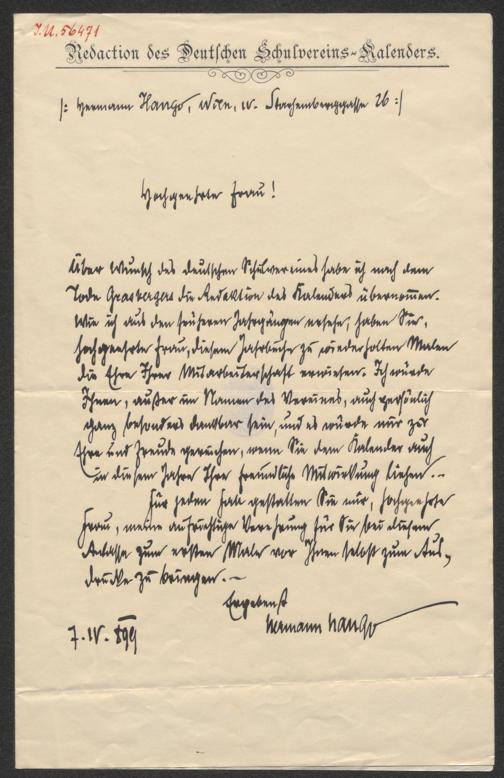 I.N. 56471
Redaction des Deutschen Schulvereins-Kalenders.
/: Hermann Hango, Wien, IV. Starhemberggasse 26 :/
Hochgeehrte Frau!
Über Wunsch des deutschen Schulvereines habe ich nach dem
Tode Grasbergers die Redaktion des Kalenders übernommen.
Wie ich aus den früheren Jahrgängen ersehe, haben Sie,
hochgeehrte Frau, diesem Jahrbuche zu wiederholten Malen
die Ehre Ihrer Mitarbeiterschaft erwiesen. Ich würde
Ihnen, außer im Namen des Vereines, auch persönlich
ganz besonders dankbar sein, und es würde mir zur
Ehre und Freude gereichen, wenn Sie dem Kalender auch
in diesem Jahre Ihre freundliche Mitwirkung liehen. –
Für jeden Fall gestatten Sie mir, hochgeehrte
Frau, meine aufrichtige Verehrung für Sie bei diesem
Anlasse zum ersten Male vor Ihnen selbst zum Aus-
drucke zu bringen. –
Ergebenst
Hermann Hango
7. IV. 899